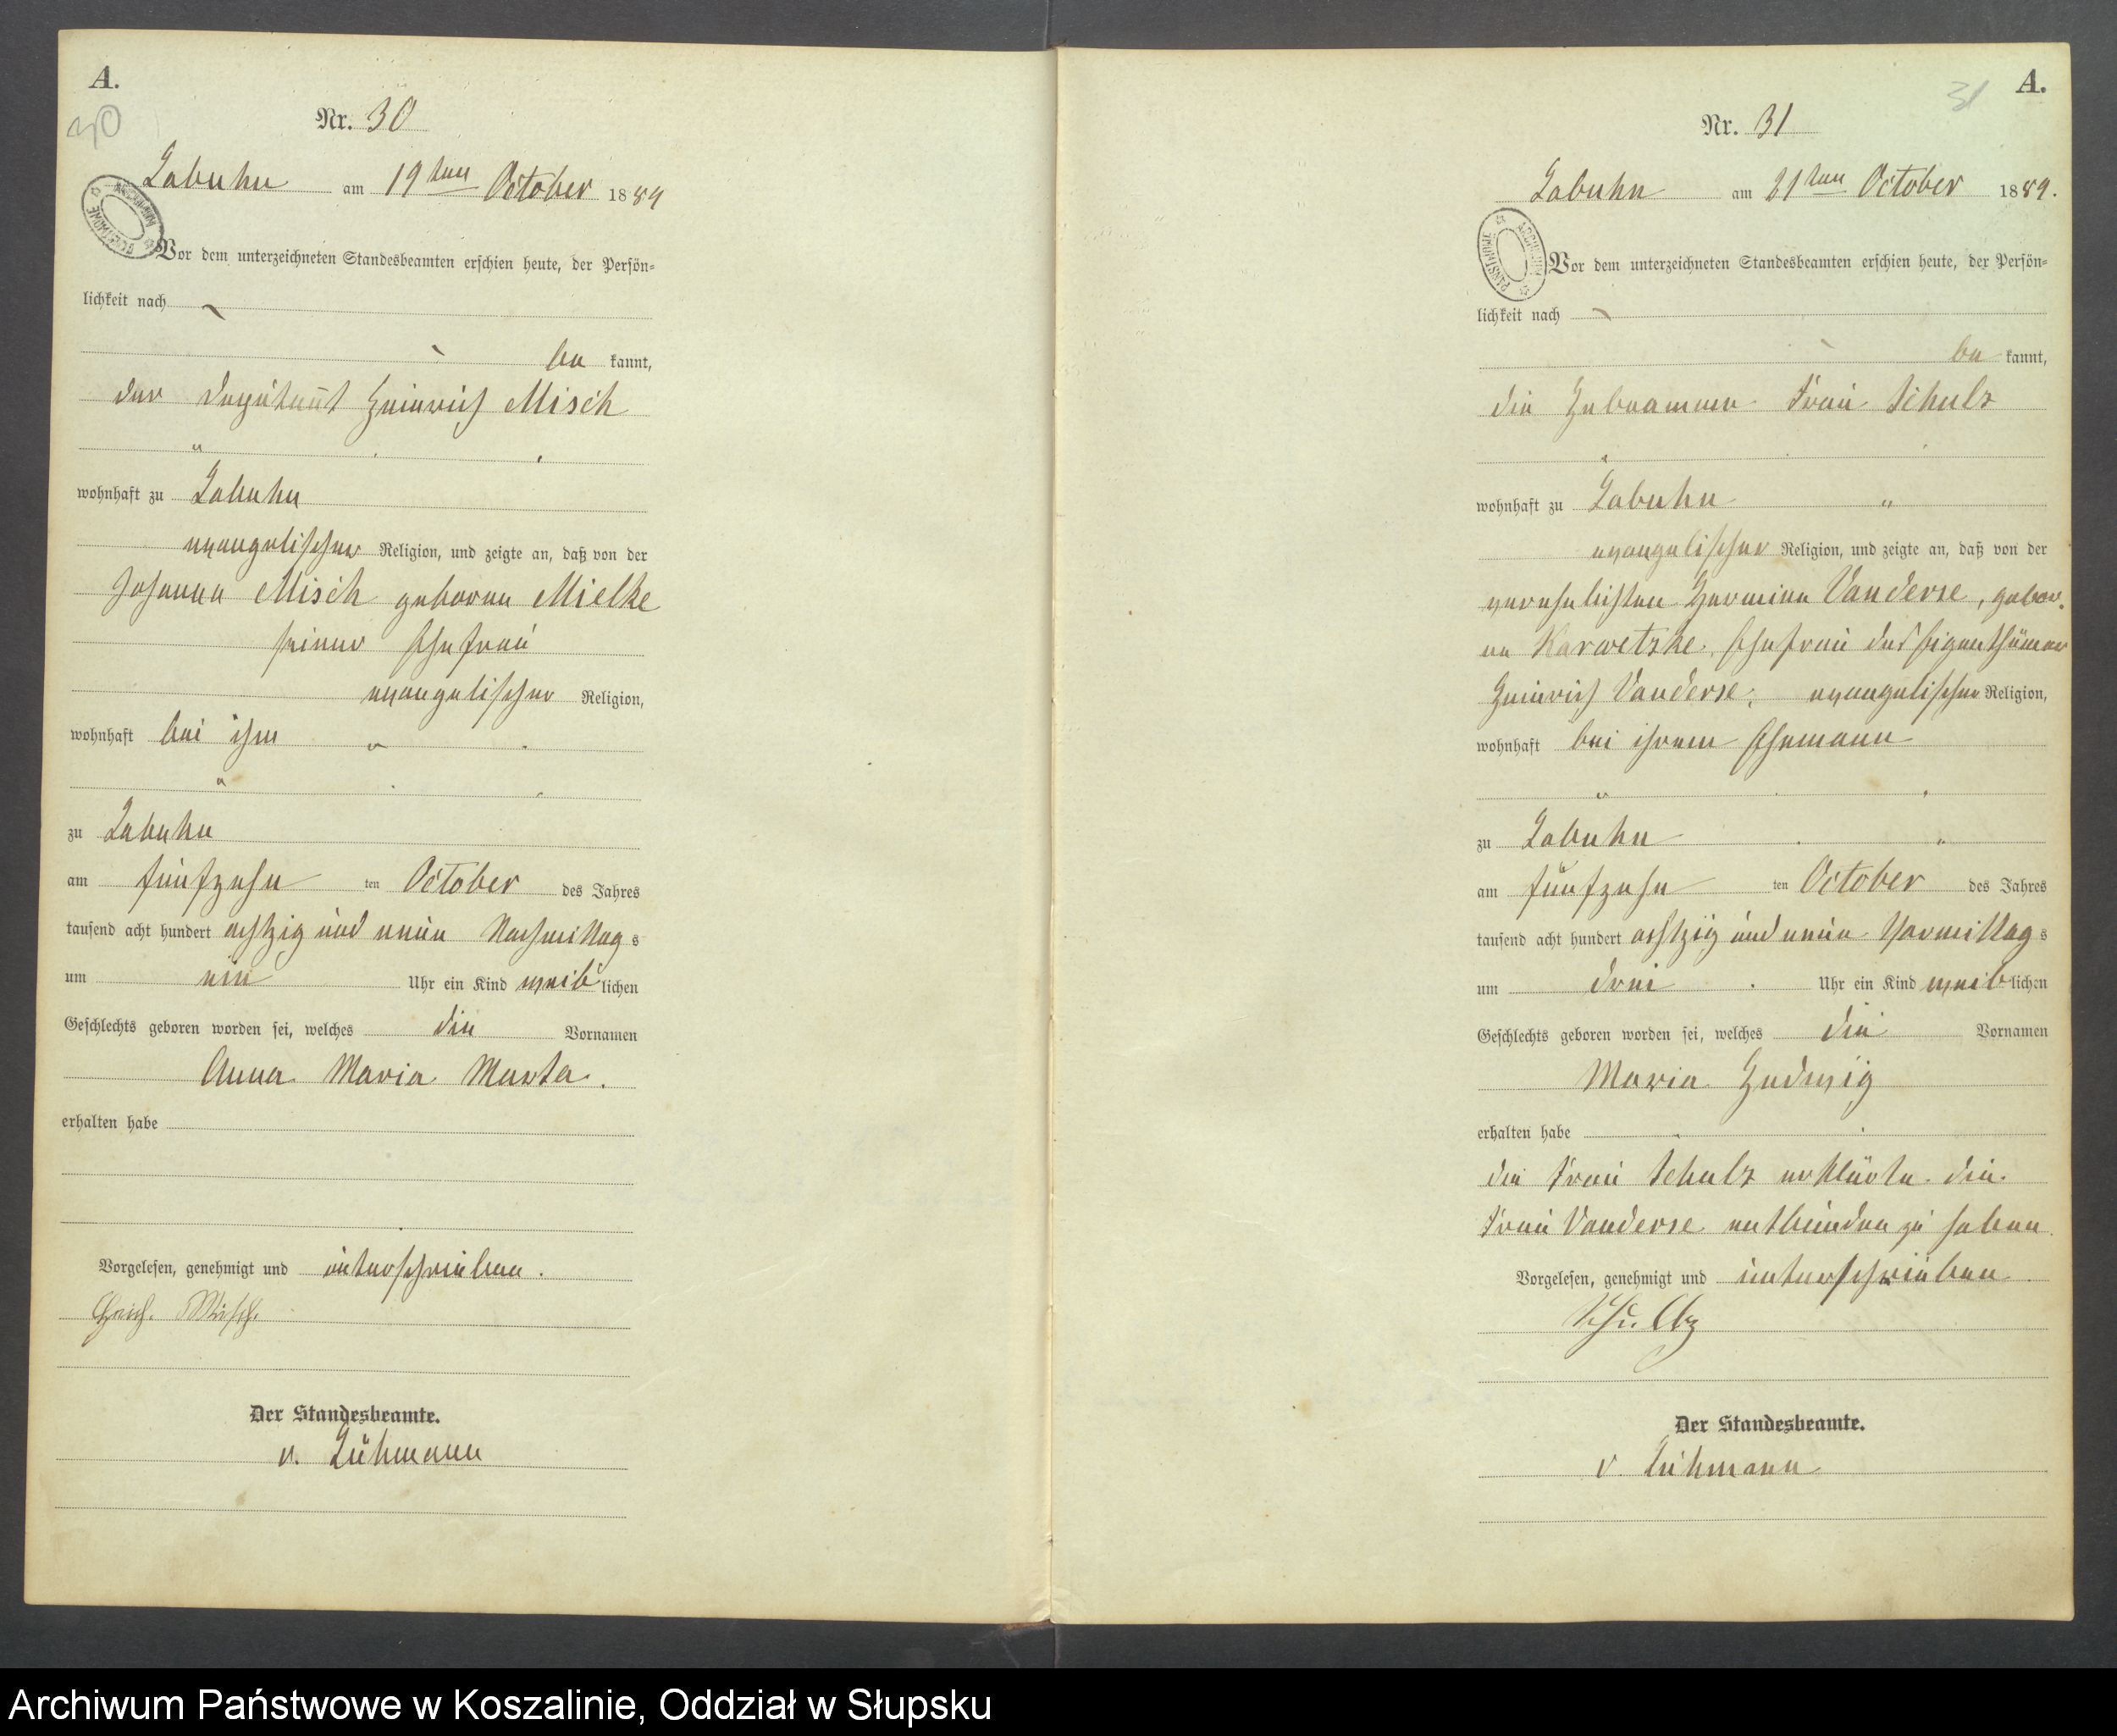 A.
30
Nr. 30
Labuhn am 19ten October 1889
Vor dem unterzeichneten Standesbeamten erschien heute, der Persön=
lichkeit nach
be kannt,
der Deputant Heinrich Misch
wohnhaft zu Labuhn
evangelischer Religion, und zeigte an, daß von der
Johanna Misch geborene Mielke
seiner Ehefrau
evangelischer Religion,
wohnhaft bei ihm
zu Labuhn
am fünfzehn ten October des Jahres
tausend acht hundert achtzig und neun Nachmittag s
um ein Uhr ein Kind weib lichen
Geschlechts geboren worden sei, welches die Vornamen
Anna Maria Marta.
erhalten habe
Vorgelesen, genehmigt und unterschrieben.
Heinr. Misch.
Der Standesbeamte.
v. Lühmann
A.
31
Nr. 31
Labuhn am 21ten October 1889.
Vor dem unterzeichneten Standesbeamten erschien heute, der Persön=
lichkeit nach
be kannt,
die Hebeamme Frau Schulz
wohnhaft zu Labuhn "
evangelischer Religion, und zeigte an, daß von der
verehelichten Hermine Vanderse, gebor.
ne Karwetzke, Ehefrau des Eigenthümer
Heinrich Vanderse, evangelischer Religion,
wohnhaft bei ihrem Ehemann
zu Labuhn "
am fünfzehn ten October des Jahres
tausend acht hundert achtzig und neun Vormittag s
um drei Uhr ein Kind weib lichen
Geschlechts geboren worden sei, welches die Vornamen
Maria Hedwig
erhalten habe
die Frau Schulz erklärte die
Frau Vanderse entbunden zu haben.
Vorgelesen, genehmigt und unterschrieben.
Schulz
Der Standesbeamte.
v. Lühmann
Archiwum Państwowe w Koszalinie, Oddział w Słupsku